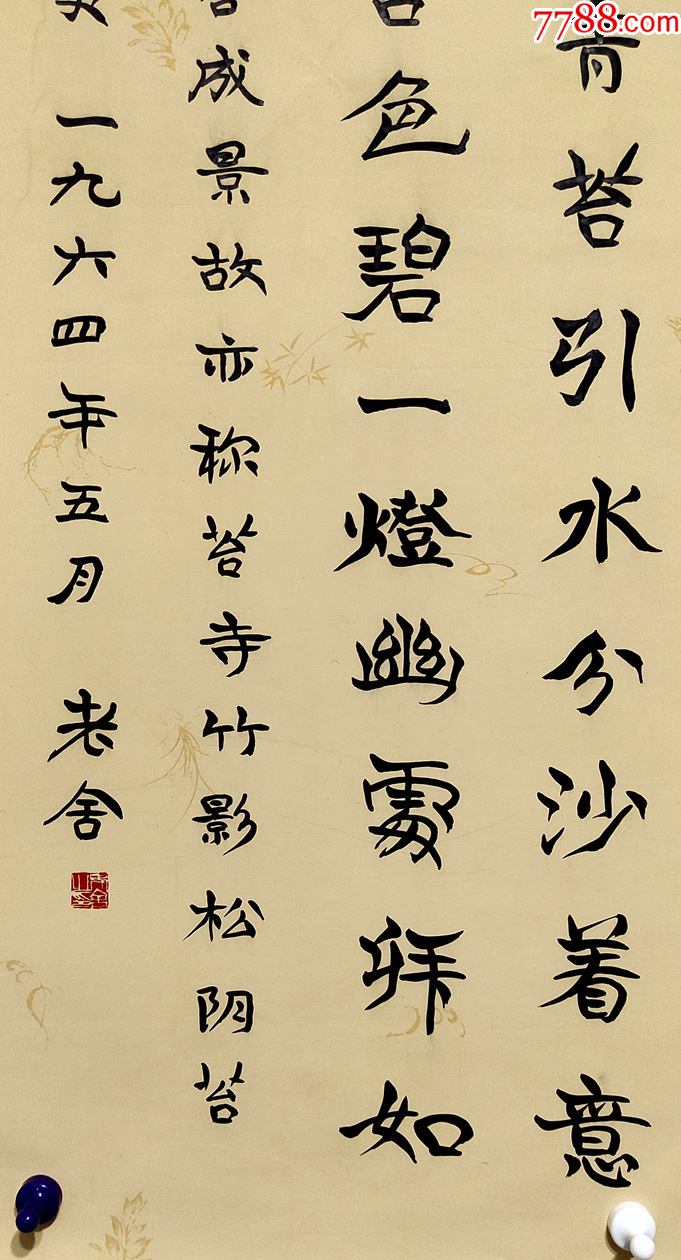 7788.com
青苔引水分沙着意
色碧一燈幽處拜如
成景故亦称苔寺竹影松阴苔
一九六四年五月 老舍